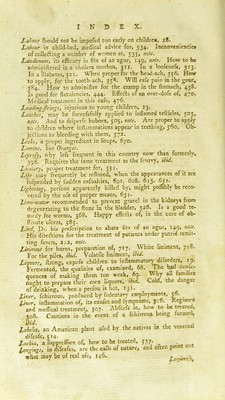 INDEX.
Labour should not be imposed too early on children, 28.
Labour in child-bed, medical advice for, 534. Inconveniencies
of collecting a number of women at, 535, note.
Laudanum, its efficacy in fits of an ague, 149, note. How to be
administered in a cholera morbus, 311. In a looseness, 313.
In a diabetes, 321. When proper for the head-ach, 356. How
to apply, for the tooth-ach, 358. Will ease pain in the gout,
384. How to administer for the cramp in the stomach, 438.
Is good for flatulencies, 441. Effects of an over-dose of, 470.
Medical treatment in this case, 476.
Leading-strings, injurious to young children, 23.
Leeches, may be successfully applied to inflamed testicles, 505,
note. And to disperse buboes, 505, note. Are proper to apply
to children where inflammations appear in teething, 560. Ob-
jections to bleeding with them, 572.
Leeks, a proper ingredient in soups, 670.
Lemons. See Oranges.
Leprosy, why less frequent in this country now than formerly,
398. Requires the same treatment as the scurvy, ibid.
Lientery, proper treatment for, 551.
Life may frequently be restored, when the appearances of it are
suspended by sudden casualties, 601. 608. 615. 631.
Lightning, persons apparently killed by, might possibly be reco-
vered by the use of proper means, 631.
Lime-water recommended to prevent gravel in the kidneys from
degenerating to the stone in the bladder, 326. Is a good re-
medy for worms, 368. Happy effects of, in the cure of ob-
stinate ulcers, 585.
Lind, Dr. his prescription to abate fits of an ague, 149, note.
His directions for the treatment of patients under putrid remit-
ting fevers, 212, note.
Liniment for burns, preparation of, 717. White liniment, 718.
For the piles, ibid. Volatile liniment, ibid.
Liquors, strong, expose children to inflammatory disorders, 19.
Fermented, the qualities of, examined, 68. The bad conse-
quences of making them too weak, 69. Why all families
ought to prepare their own liquors, ibid. Cold, the danger
of drinking, when a person is hot, 131.
Liver, schirrous, produced by sedentary employments, 56.
Liver, inflammation of, its causes and symptoms, 306. Regimen
and medical treatment, 307. Abscess in, how to be treated,
308. Cautions in the event of a schirrous being formed,
ibid.
Lobelia, an American plant used by the natives in the venereal
disease, 514.
Lochia, a suppression of, how to be treated, 537.
Longings, in diseases, are the calls of nature, and often point out
what may be of real use, 146.
Looseness,